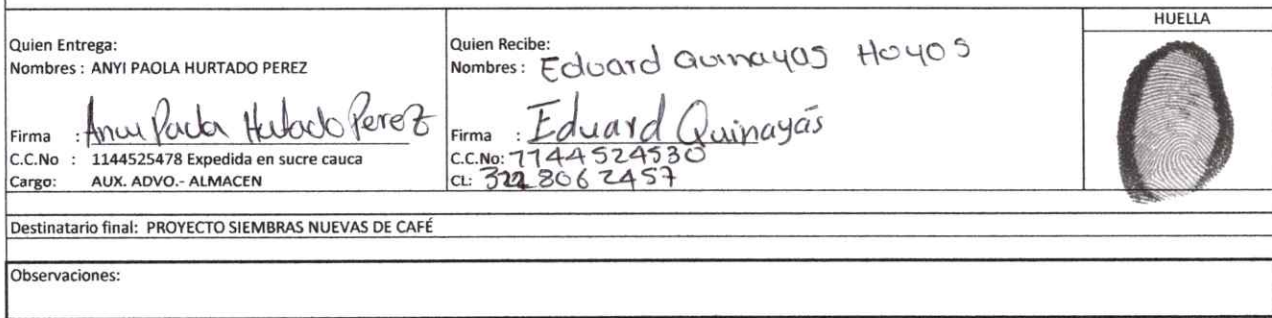 HUELLA
Quien Entrega:
Nombres : ANYI PAOLA HURTADO PEREZ
Firma : Anyi Paola Hurtado Perez
C.C.No : 1144525478 Expedida en sucre cauca
Cargo: AUX. ADVO.- ALMACEN
Quien Recibe:
Nombres : Eduard Quinayas Hoyos
Firma : Eduard Quinayás
C.C.No: 1144524530
CL: 322 806 2457
Destinatario final: PROYECTO SIEMBRAS NUEVAS DE CAFÉ
Observaciones: